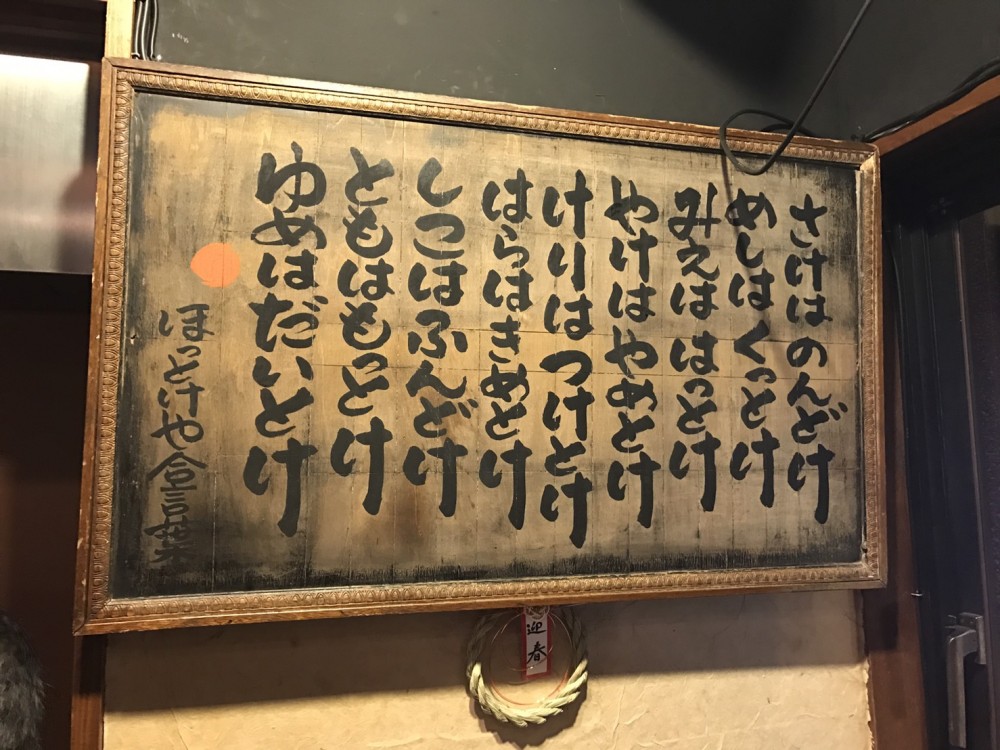 さけはのんどけ
めしはくっとけ
みえははっとけ
やけはやめとけ
けりはつけとけ
はらはきめとけ
しつこはふんどけ
ともはもっとけ
ゆめはだいとけ
ほっとけや合言葉
迎春